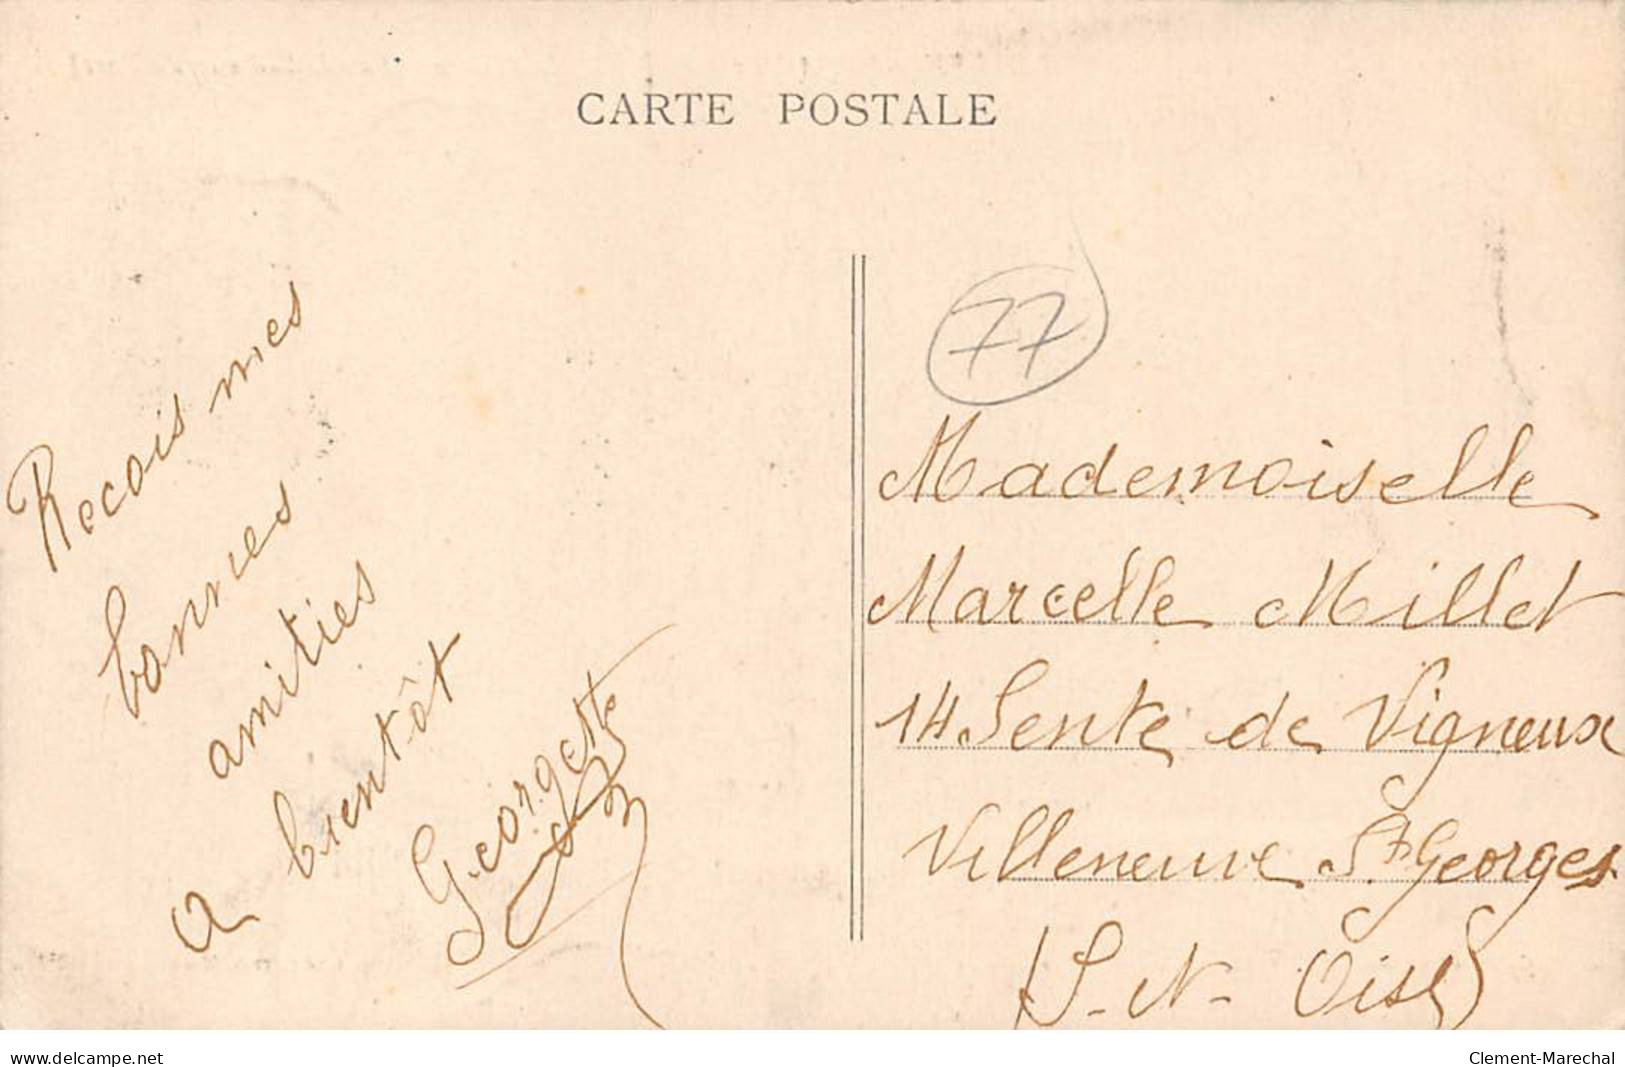 CARTE POSTALE
Recois mes
bonnes
amities
a bientôt
Georgette
77
Mademoiselle
Marcelle Millet
14 Sente de Vigneux
Villeneuve St Georges
(S-N-Oise)
www.delcampe.net
Clement-Marechal